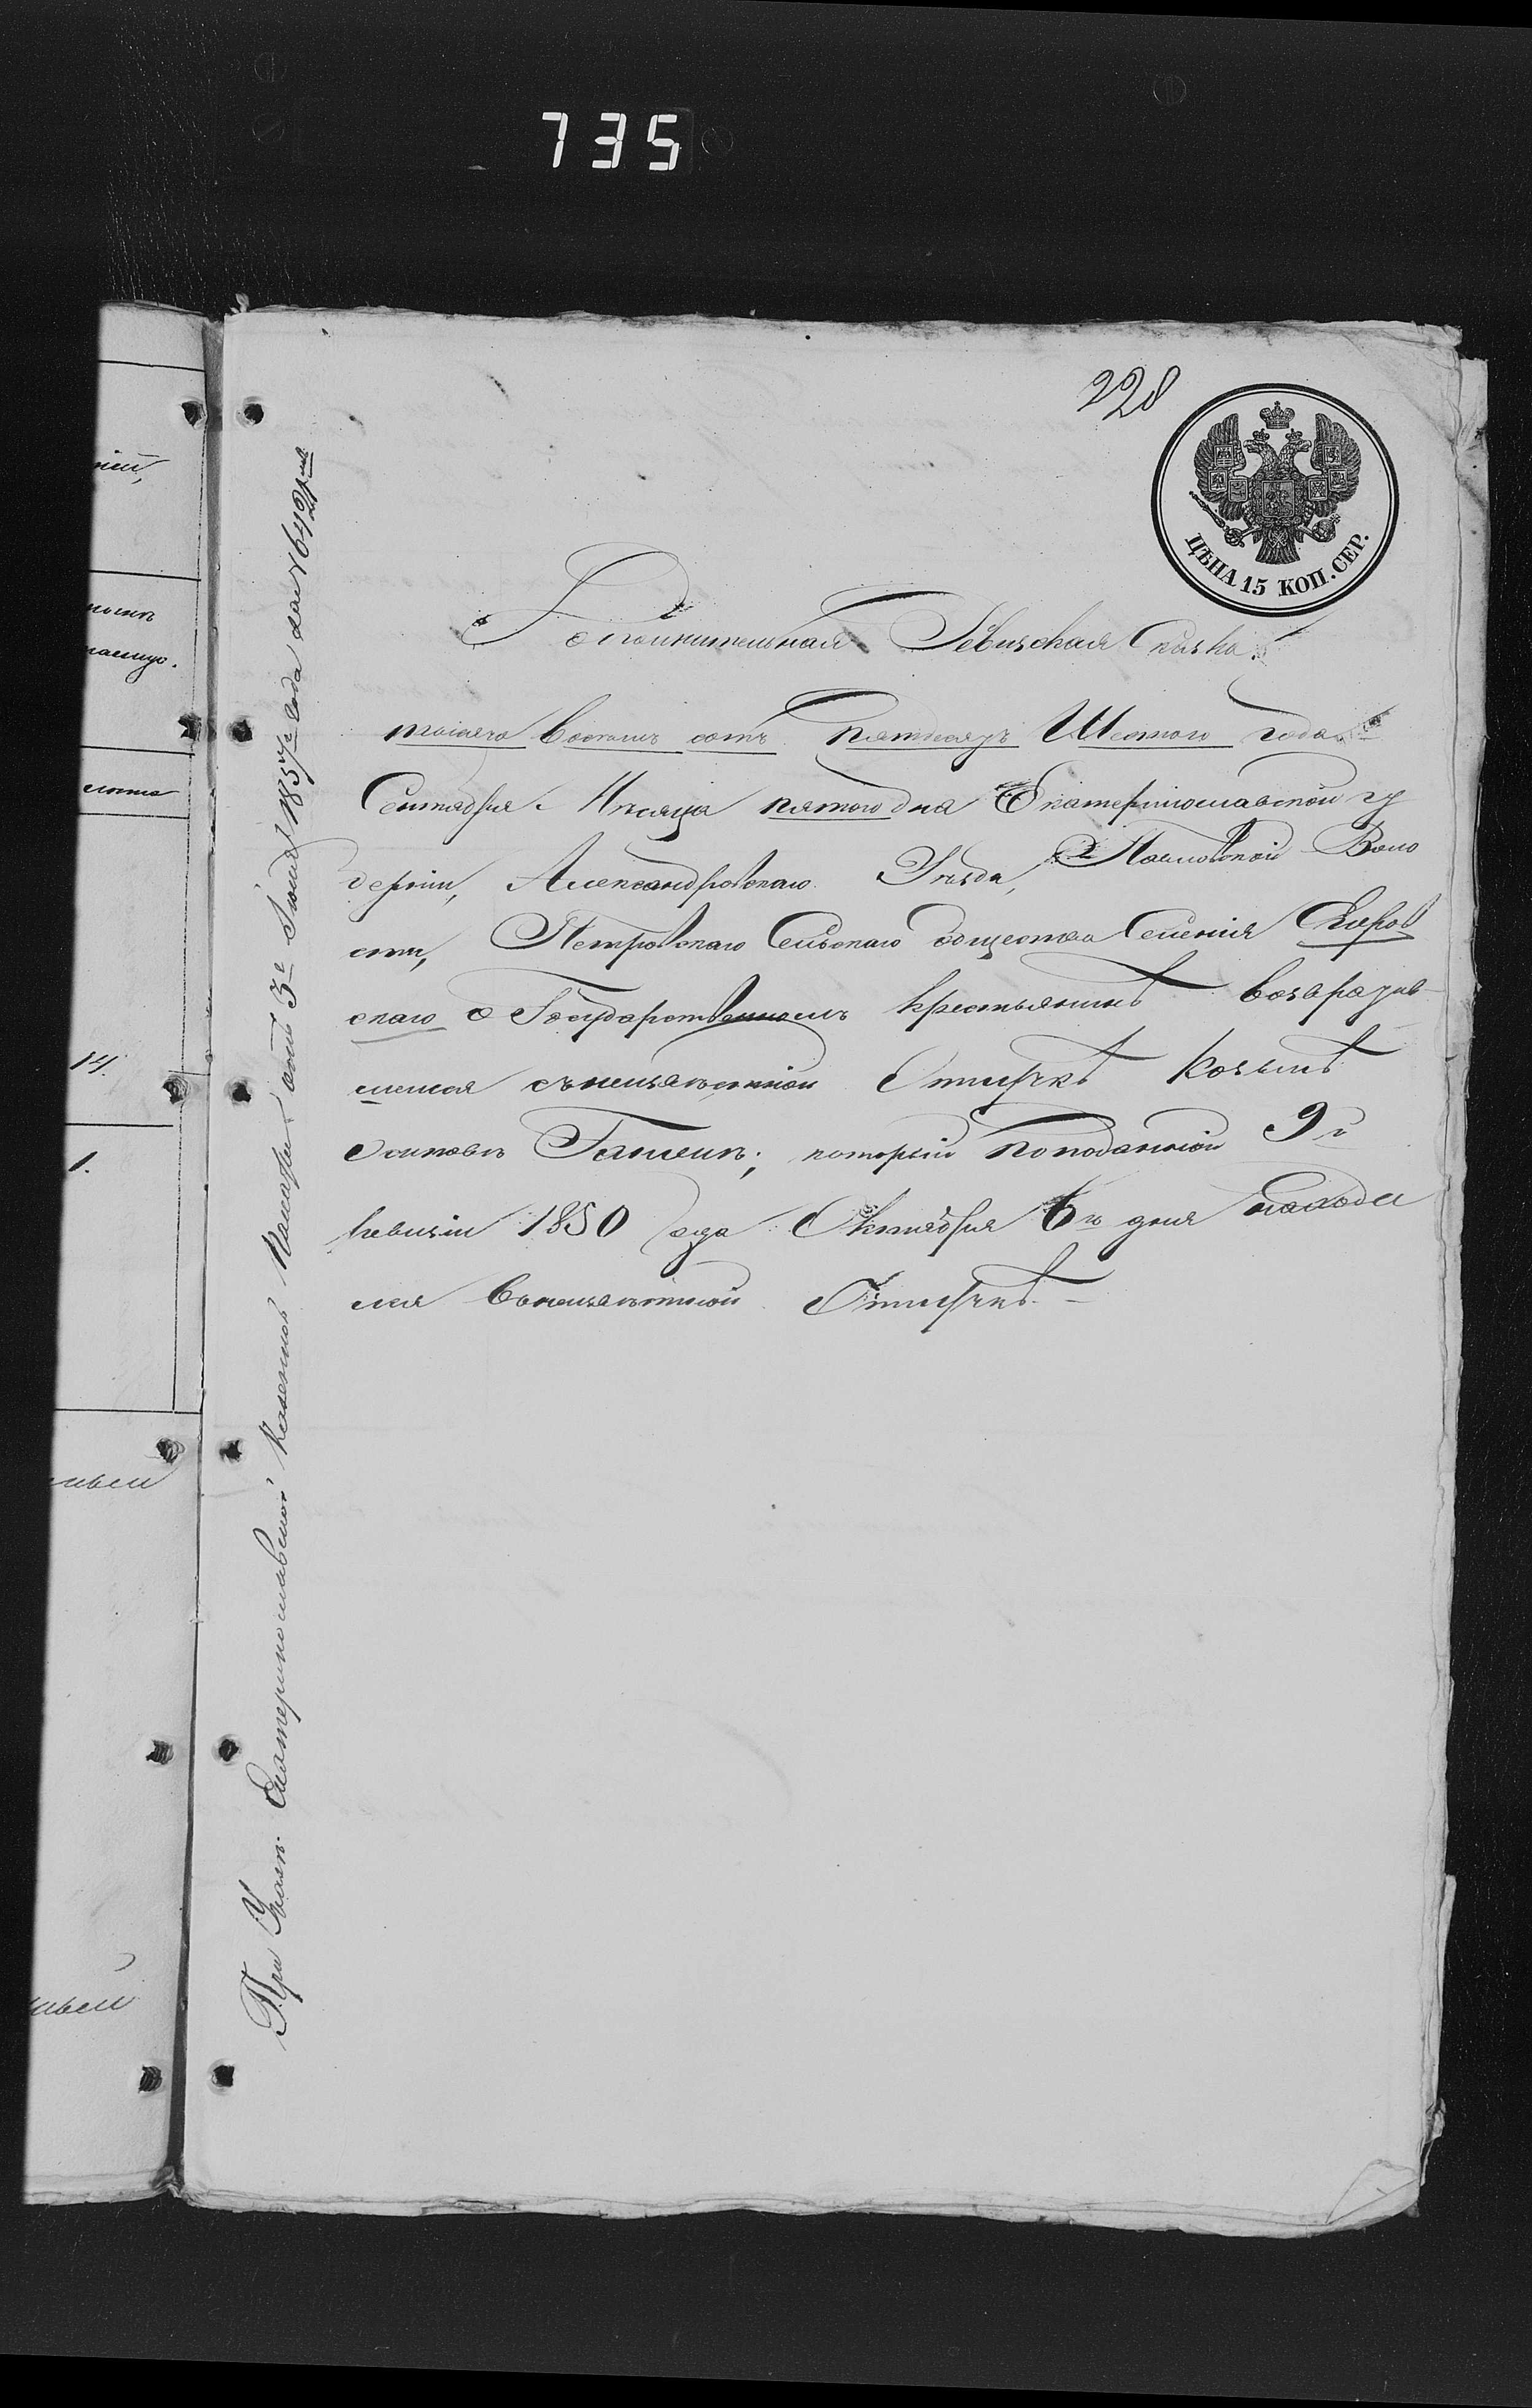 735
228
ЦѢНА 15 КОП. СЕР.
Дополнительная Ревизская Сказка
тысяча восемь сотъ пятдесятъ Шестого года
Сентября Мѣсяца пятого дня Екатеринославской гу
берніи, Александровскаго Уѣзда, Воло
сти, Петровскаго Сельскаго общества Селенія
скаго о Государственномъ крестьянинѣ возвратив
шемся отлучкѣ Козьмѣ
Осиповѣ который поподанной 9й
ревизіи 1850 года Октября 6го дня находи
лся отлучкѣ.
При Указѣ Екатеринославской Казенной Палаты отъ 3го 1857 года за №
14.
1.